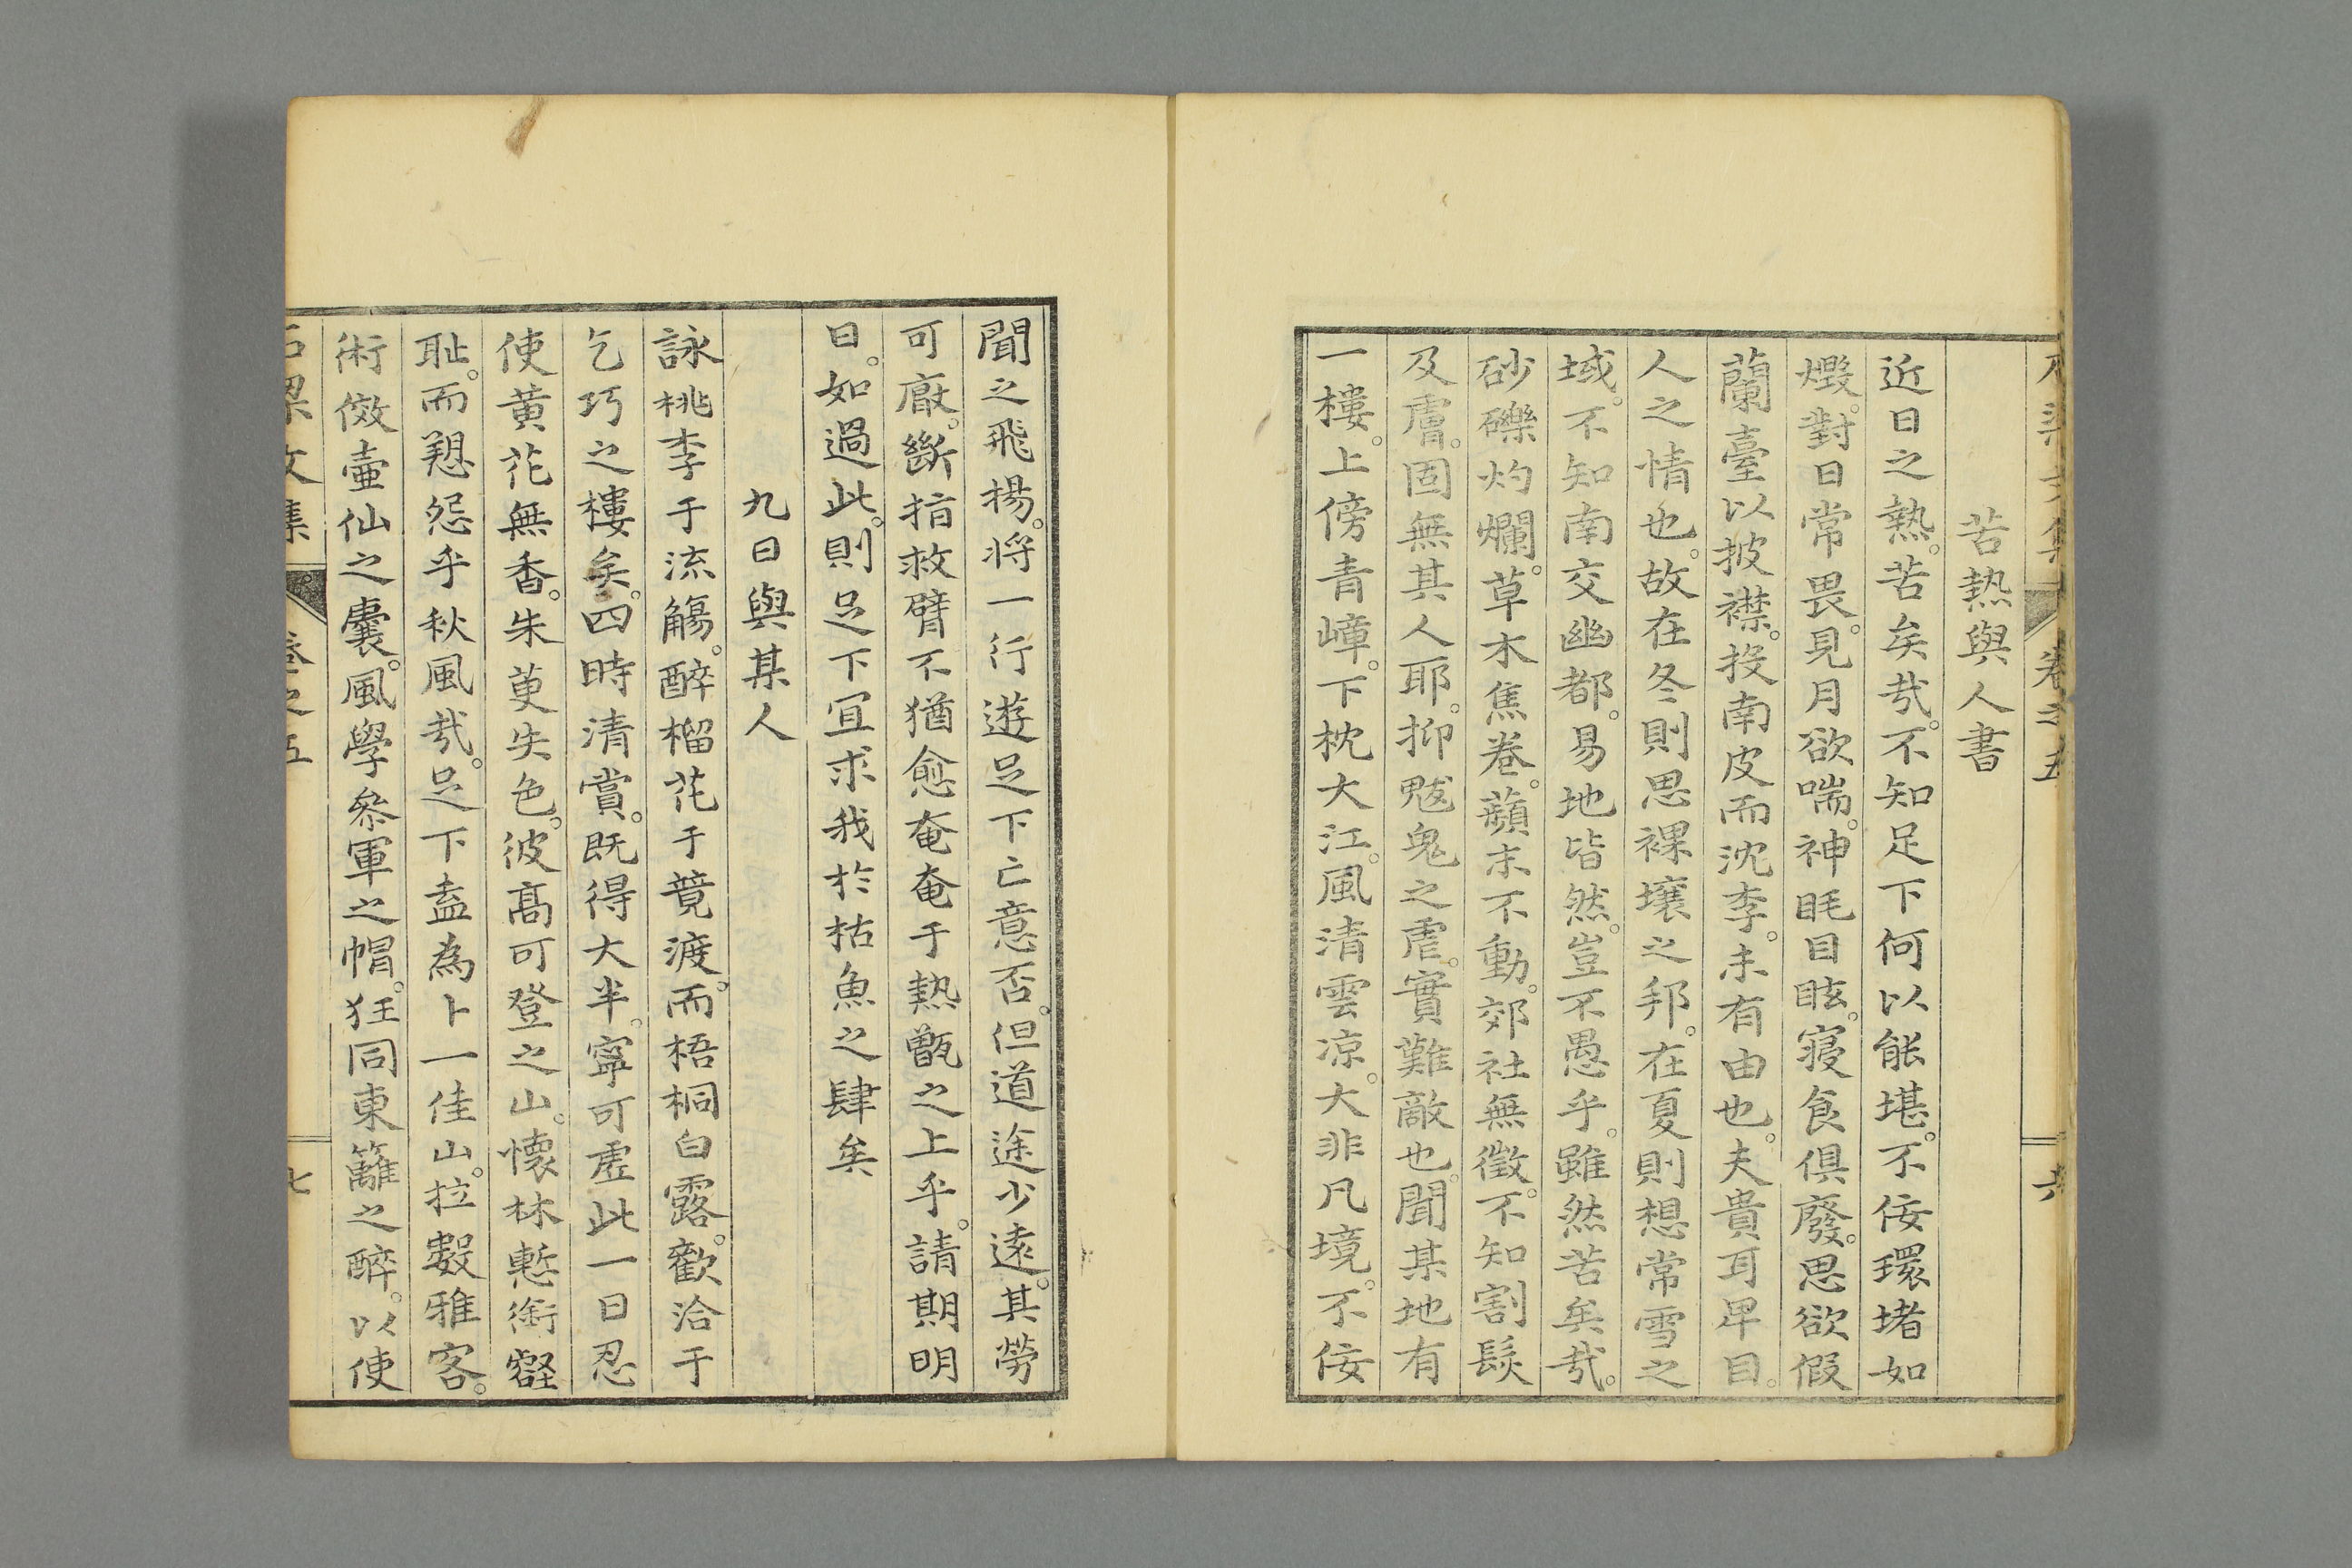 苦熱與人書
近日之熱。苦矣㢤。不知足下何以能堪。不佞環堵如
燬。對日常畏。見月欲喘。神眊目眩。寢食俱廢。思欲假
蘭臺以披襟。投南皮而沈李。未有由也。夫貴耳卑目。
人之情也。故在冬則思裸壤之邦。在夏則想常雪之
域。不知南交幽都。易地皆然。豈不愚乎。雖然苦矣㢤。
砂礫灼爛。草木焦卷。蘋末不動。郊社無徵。不知割髮
及膚。固無其人耶。抑魃鬼之虐。實難敵也。聞某地有
一樓。上傍青嶂。下枕大江。風清雲凉。大非凡境。不佞
聞之飛揚。将一行遊足下亡意否。但道途少遠。其勞
可厭。斷指救臂不猶愈奄奄于熱甑之上乎。請期明
日。如過此。則足下宜求我於枯魚之肆矣
九日與某人
詠桃李于流觴。醉榴花于競渡。而梧桐白露。歡洽于
乞巧之樓矣。四時清賞。既得大半。寧可虛此一日忍
使黄花無香。朱萸失色。彼髙可登之山。懷林慙衔壑
耻。而羫怨乎秋風㢤。足下盍為卜一佳山。拉數雅客。
術傚壷仙之囊。風學叅軍之帽。狂同東籬之醉。以使
石梁文集 卷之五 七